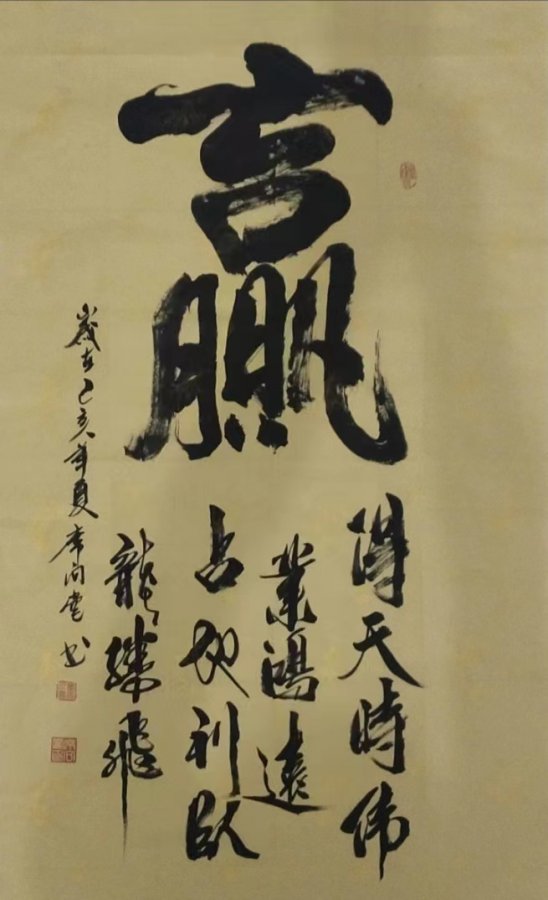 赢
得天時伟
業鴻遠
占地利臥
龍騰飛
歲在己亥年夏李向書